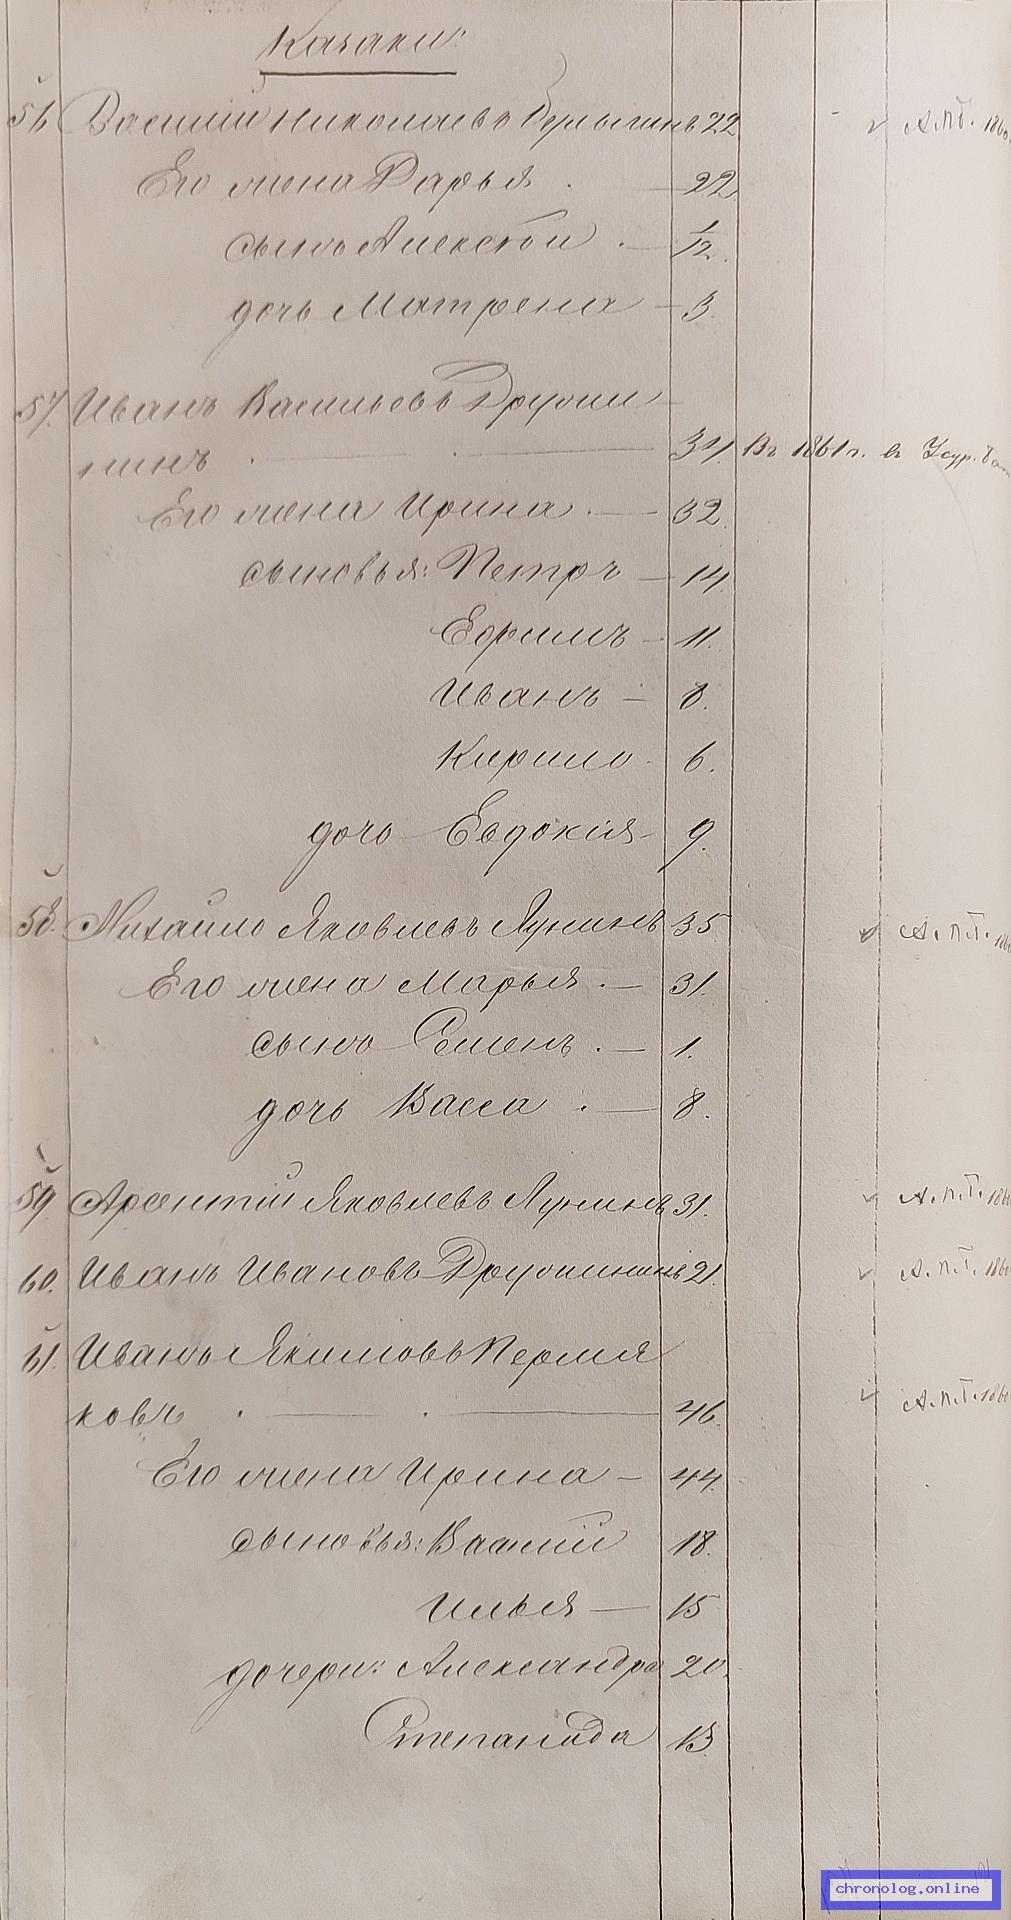 Казаки:
56 Василій Николаевъ 22 А.П.Б. 1860
Его жена Дарья 22.
сынъ Алексѣй 1/12.
дочь Матрена 3
57. Иванъ Васильевъ Дружи
нинъ 34. Въ 1861 г. въ Уссур. бат
Его жена Ирина 32.
сыновья: Петръ 14.
Ефимъ 11.
Иванъ 8.
Кирило 6.
дочь Евдокія 9.
58. Михайло Яковлевъ Лунинъ 35 А.П.Г. 1860
Его жена Марья 31.
сынъ Семенъ 1.
дочь Васса 8.
59. Арсентій Яковлевъ Лунинъ 31. А.П.Г. 1860
60. Иванъ Ивановъ Дружининъ 21. А.П.Г. 1860
61. Иванъ Якимовъ Пермя
ковъ 46. А.П.Г. 1860
Его жена Ирина 44.
сыновья: Василій 18.
Илья 15
дочери: Александра 20.
Степанида 13.
chronolog.online